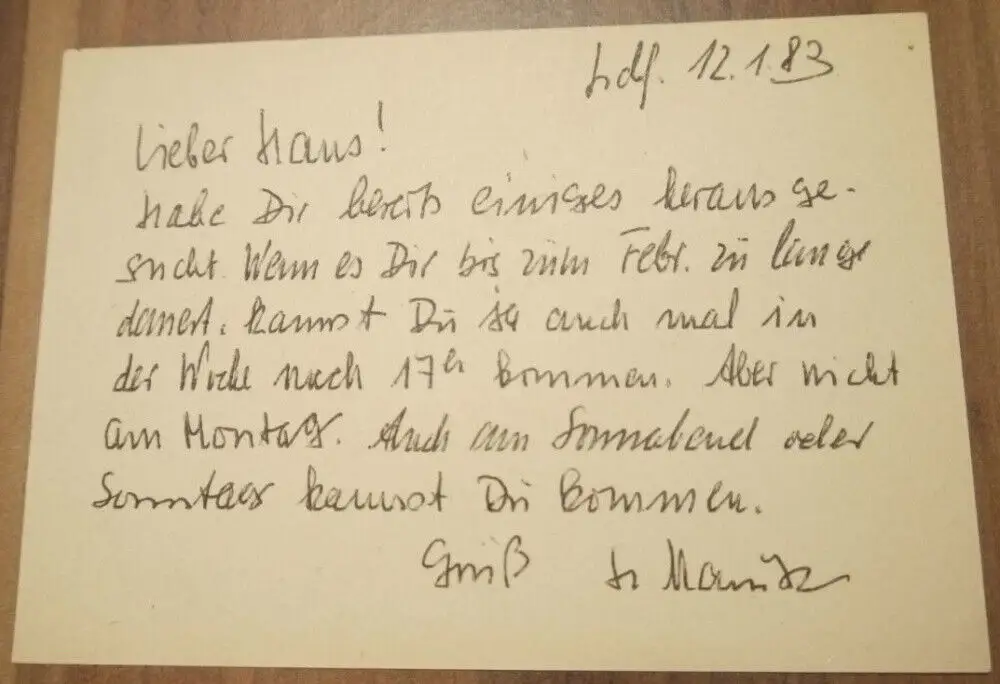 Hdf. 12.1.83
Lieber Hans!
Habe Dir bereits einiges herausge-
sucht. Wenn es Dir bis zum Febr. zu lange
dauert, kannst Du ja auch mal in
der Woche nach 17h kommen. Aber nicht
am Montag. Auch am Sonnabend oder
Sonntag kannst Du kommen.
Gruß H.